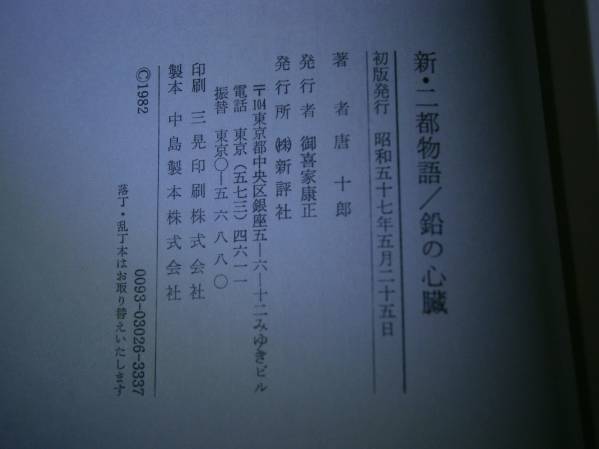 新・二都物語／鉛の心臓
初版発行 昭和五十七年五月二十五日
著者 唐十郎
発行者 御喜家康正
発行所 ㈱新評社
〒104東京都中央区銀座五―六―十二みゆきビル
電話 東京(五七三)四六一一
振替 東京〇―五六八八〇
印刷 三晃印刷株式会社
製本 中島製本株式会社
©1982
0093-03026-3337
落丁・乱丁本はお取り替えいたします